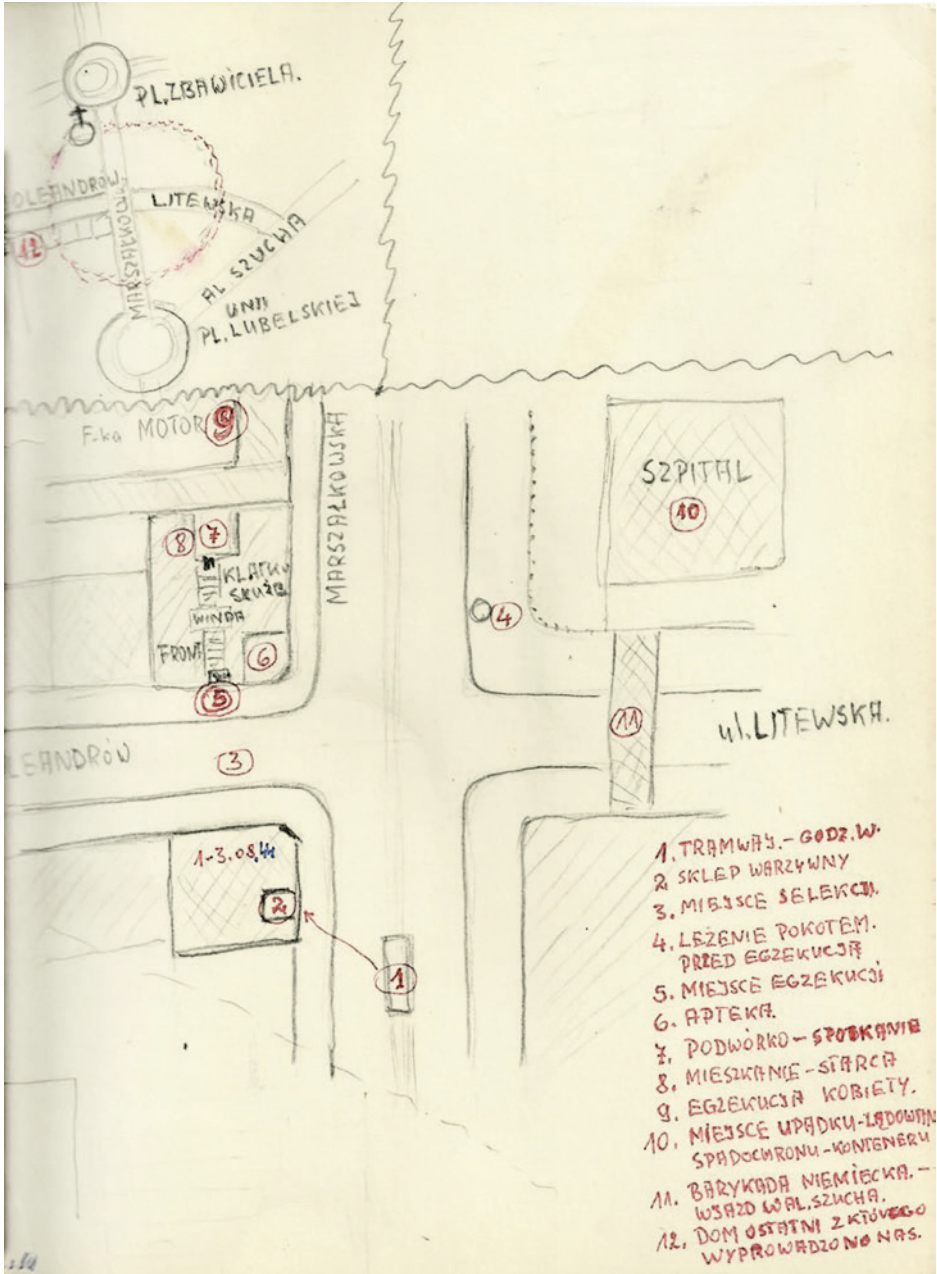 PL. ZBAWICIELA.
OLEANDRÓW
LITEWSKA
MARSZAŁKOWSKA
12
AL SZUCHA
UNII
PL. LUBELSKIEJ
F-ka MOTOR
9
MARSZAŁKOWSKA
SZPITAL
10
8
7
KLATKA
SŁUŻB.
WINDA
FRONT
6
4
5
11
ul. LITEWSKA.
LEANDRÓW
3
1-3.08.44
2
1
1. TRAMWAJ. - GODZ. W.
2 SKLEP WARZYWNY
3. MIEJSCE SELEKCJI.
4. LEŻENIE POKOTEM.
PRZED EGZEKUCJĄ
5. MIEJSCE EGZEKUCJI
6. APTEKA.
7. PODWÓRKO - SPOTKANIE
8. MIESZKANIE - STARCA
9. EGZEKUCJA KOBIETY.
10. MIEJSCE UPADKU - LĄDOWAN
SPADOCHRONU - KONTENERU
11. BARYKADA NIEMIECKA. -
WJAZD W AL. SZUCHA.
12. DOM OSTATNI Z KTÓREGO
WYPROWADZONO NAS.